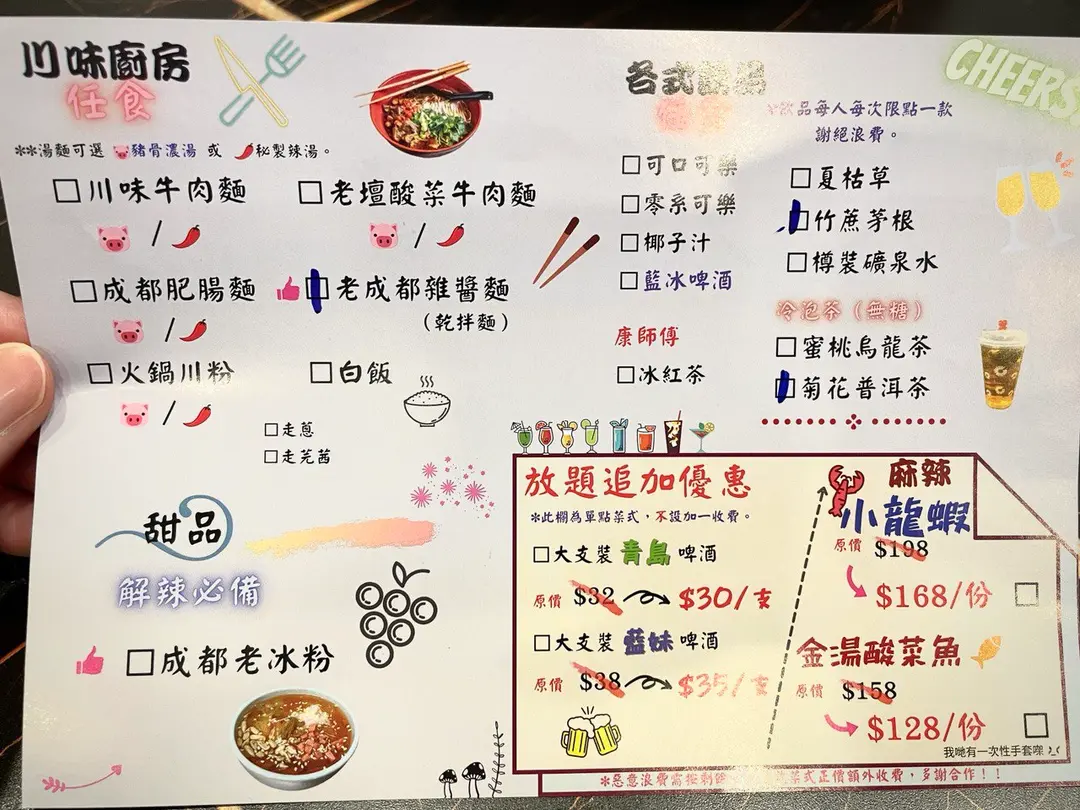 川味廚房
任食
**湯麵可選 豬骨濃湯 或 秘製辣湯。
□川味牛肉麵 □老壇酸菜牛肉麵
/ /
□成都肥腸麵 □老成都雜醬麵
(乾拌麵)
/
□火鍋川粉 □白飯
/
□走蔥
□走芫茜
甜品
解辣必備
□成都老冰粉
各式
CHEERS
飲品每人每次限點一款
謝絕浪費。
□可口可樂
□零系可樂
□椰子汁
□藍冰啤酒
康師傅
□冰紅茶
□夏枯草
□竹蔗茅根
□樽裝礦泉水
冷泡茶(無糖)
□蜜桃烏龍茶
□菊花普洱茶
放題追加優惠
*此欄為單點菜式,不設加一收費。
□大支裝 青島 啤酒
原價 $32 $30/支
□大支裝 藍妹 啤酒
原價 $38 $35/支
麻辣
小龍蝦
原價 $198
$168/份 □
金湯酸菜魚
原價 $158
$128/份 □
我哋有一次性手套㗎
*惡意浪費需按剩餘 菜式正價額外收費,多謝合作!!